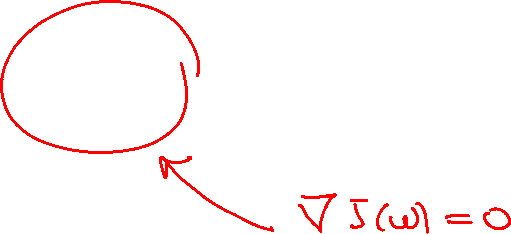 ∇ J(ω) = 0